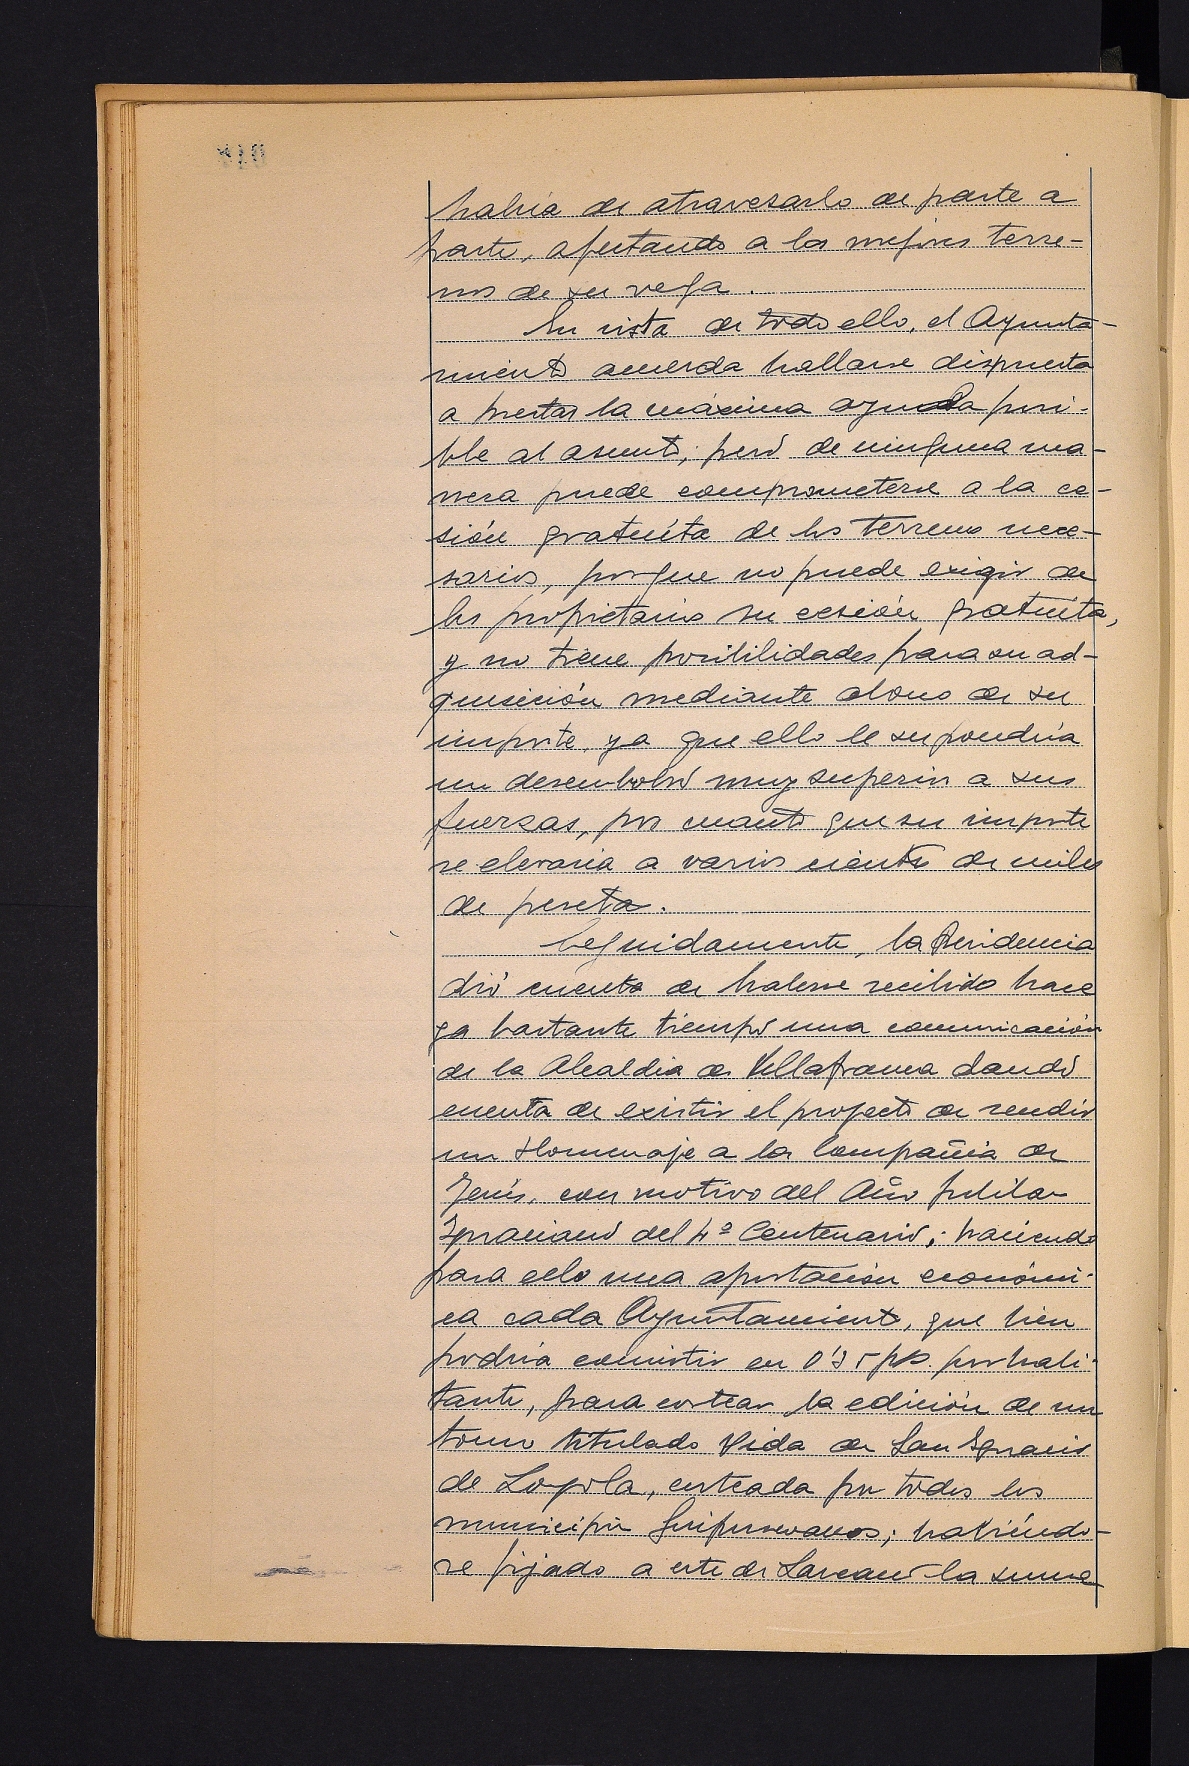 había de atravesarlo de parte a
parte, afectando a los mejores terre-
nos de su vega.
En vista de todo ello, el Ayunta-
miento acuerda hallarse dispuesto
a prestar la máxima ayuda posi-
ble al asunto; pero de ninguna ma-
nera puede comprometerse a la ce-
sión gratuíta de los terrenos nece-
sarios, porque no puede exigir de
los propietarios su cesión gratuíta,
y no tiene posibilidades para su ad-
quisición mediante abono de su
importe, ya que ello le supondría
un desembolso muy superior a sus
fuerzas, por cuanto que su importe
se elevaría a varios cientos de miles
de pesetas.
Seguidamente, la Presidencia
dió cuenta de haberse recibido hace
ya bastante tiempo una comunicación
de la Alcaldía de Villafranca dando
cuenta de existir el proyecto de rendir
un Homenaje a la Compañía de
Jesús, con motivo del Año Jubilar
Ignaciano del 4º Centenario; haciendo
para ello una aportación económi-
ca cada Ayuntamiento, que bien
podría consistir en pts. por habi-
tante, para costear la edición de un
tomo titulado Vida de San Ignacio
de Loyola, costeada por todos los
municipios Guipuzcoanos; habiéndo-
se fijado a este de Lazcano la suma